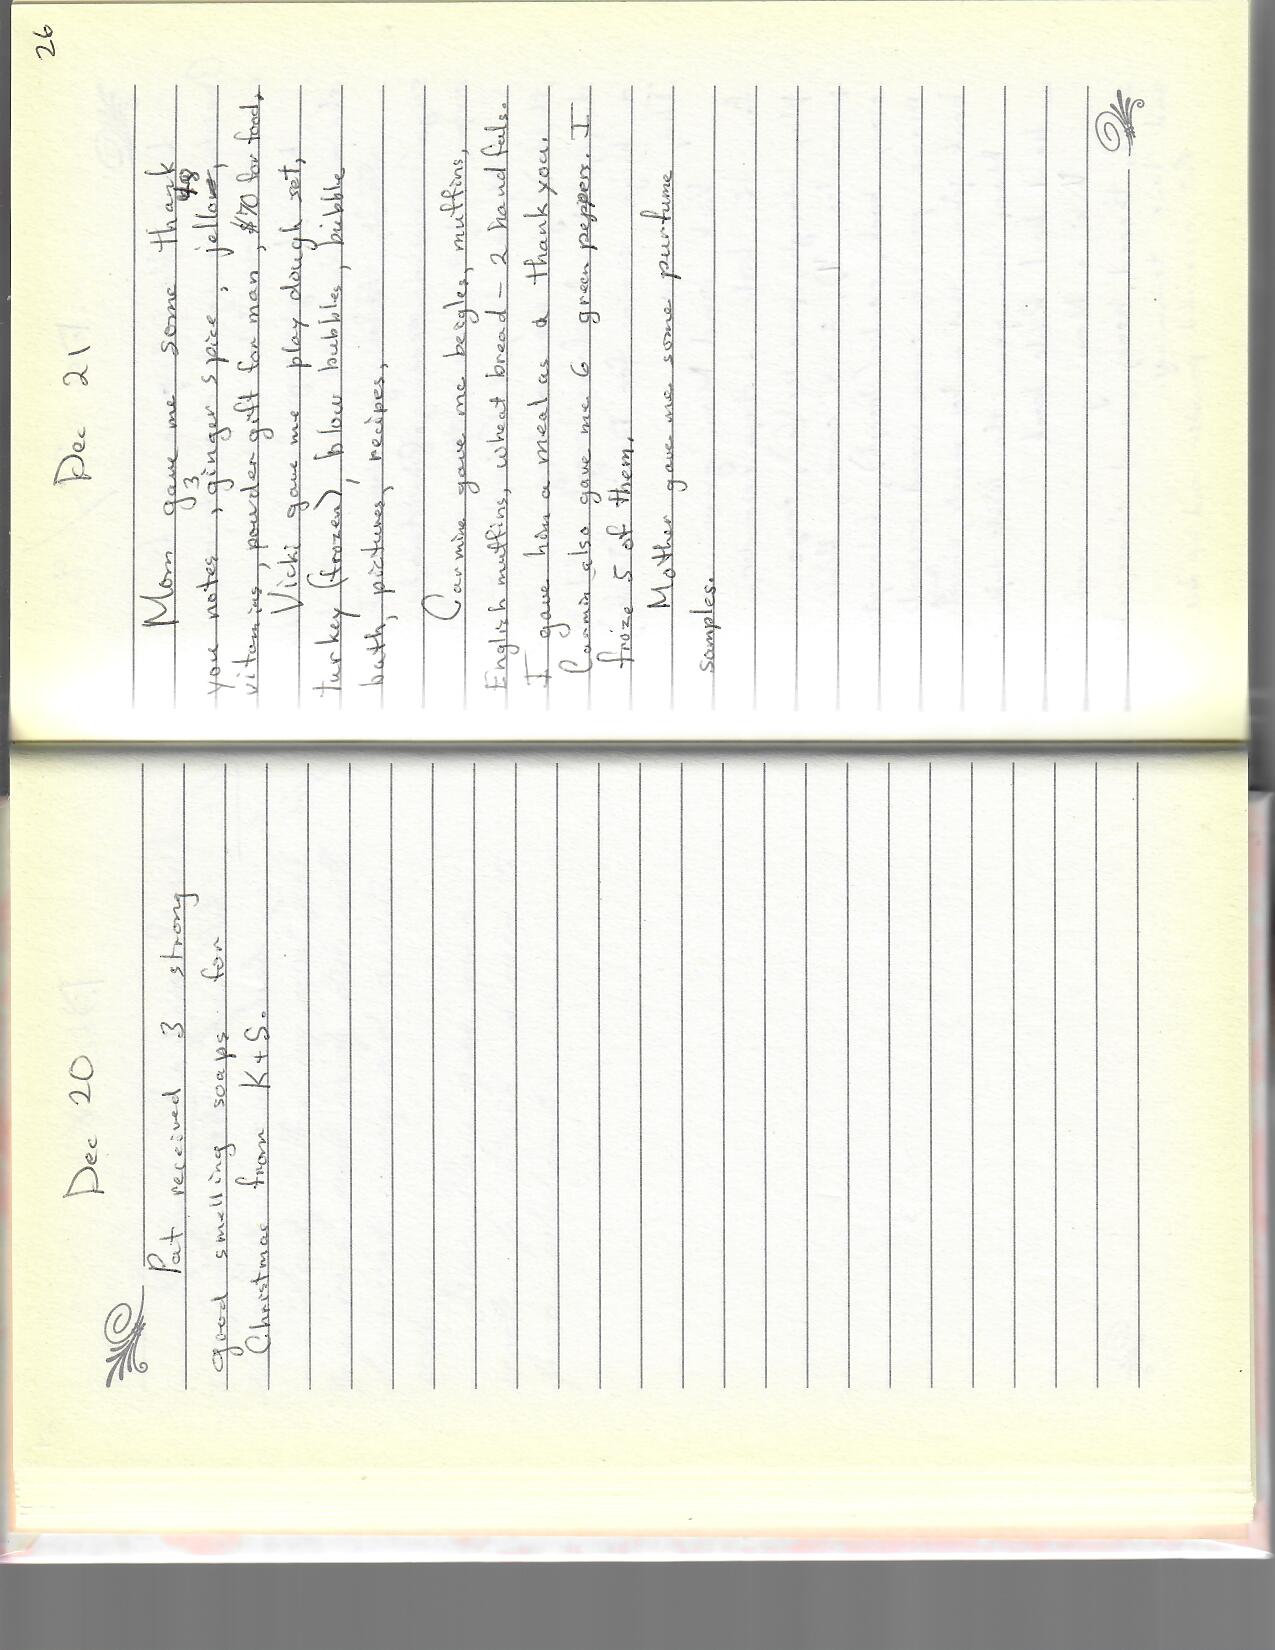 Dec 20
Pat received 3 strong
good smelling soaps for
Christmas from K+S.
26
Dec 21
Mom gave me some thank
you notes, 3 ginger spice, jello,
vitamins, powder gift for man, $70 for food,
Vicki gave me play dough set,
turkey (frozen), blow bubbles, bubble
bath, pictures, recipes,
Carmine gave me beigles, muffins,
English muffins, wheat bread - 2 handfuls.
I gave him a meal as a thank you.
Carmin also gave me 6 green peppers. I
froze 5 of them.
Mother gave me some purfume
samples.